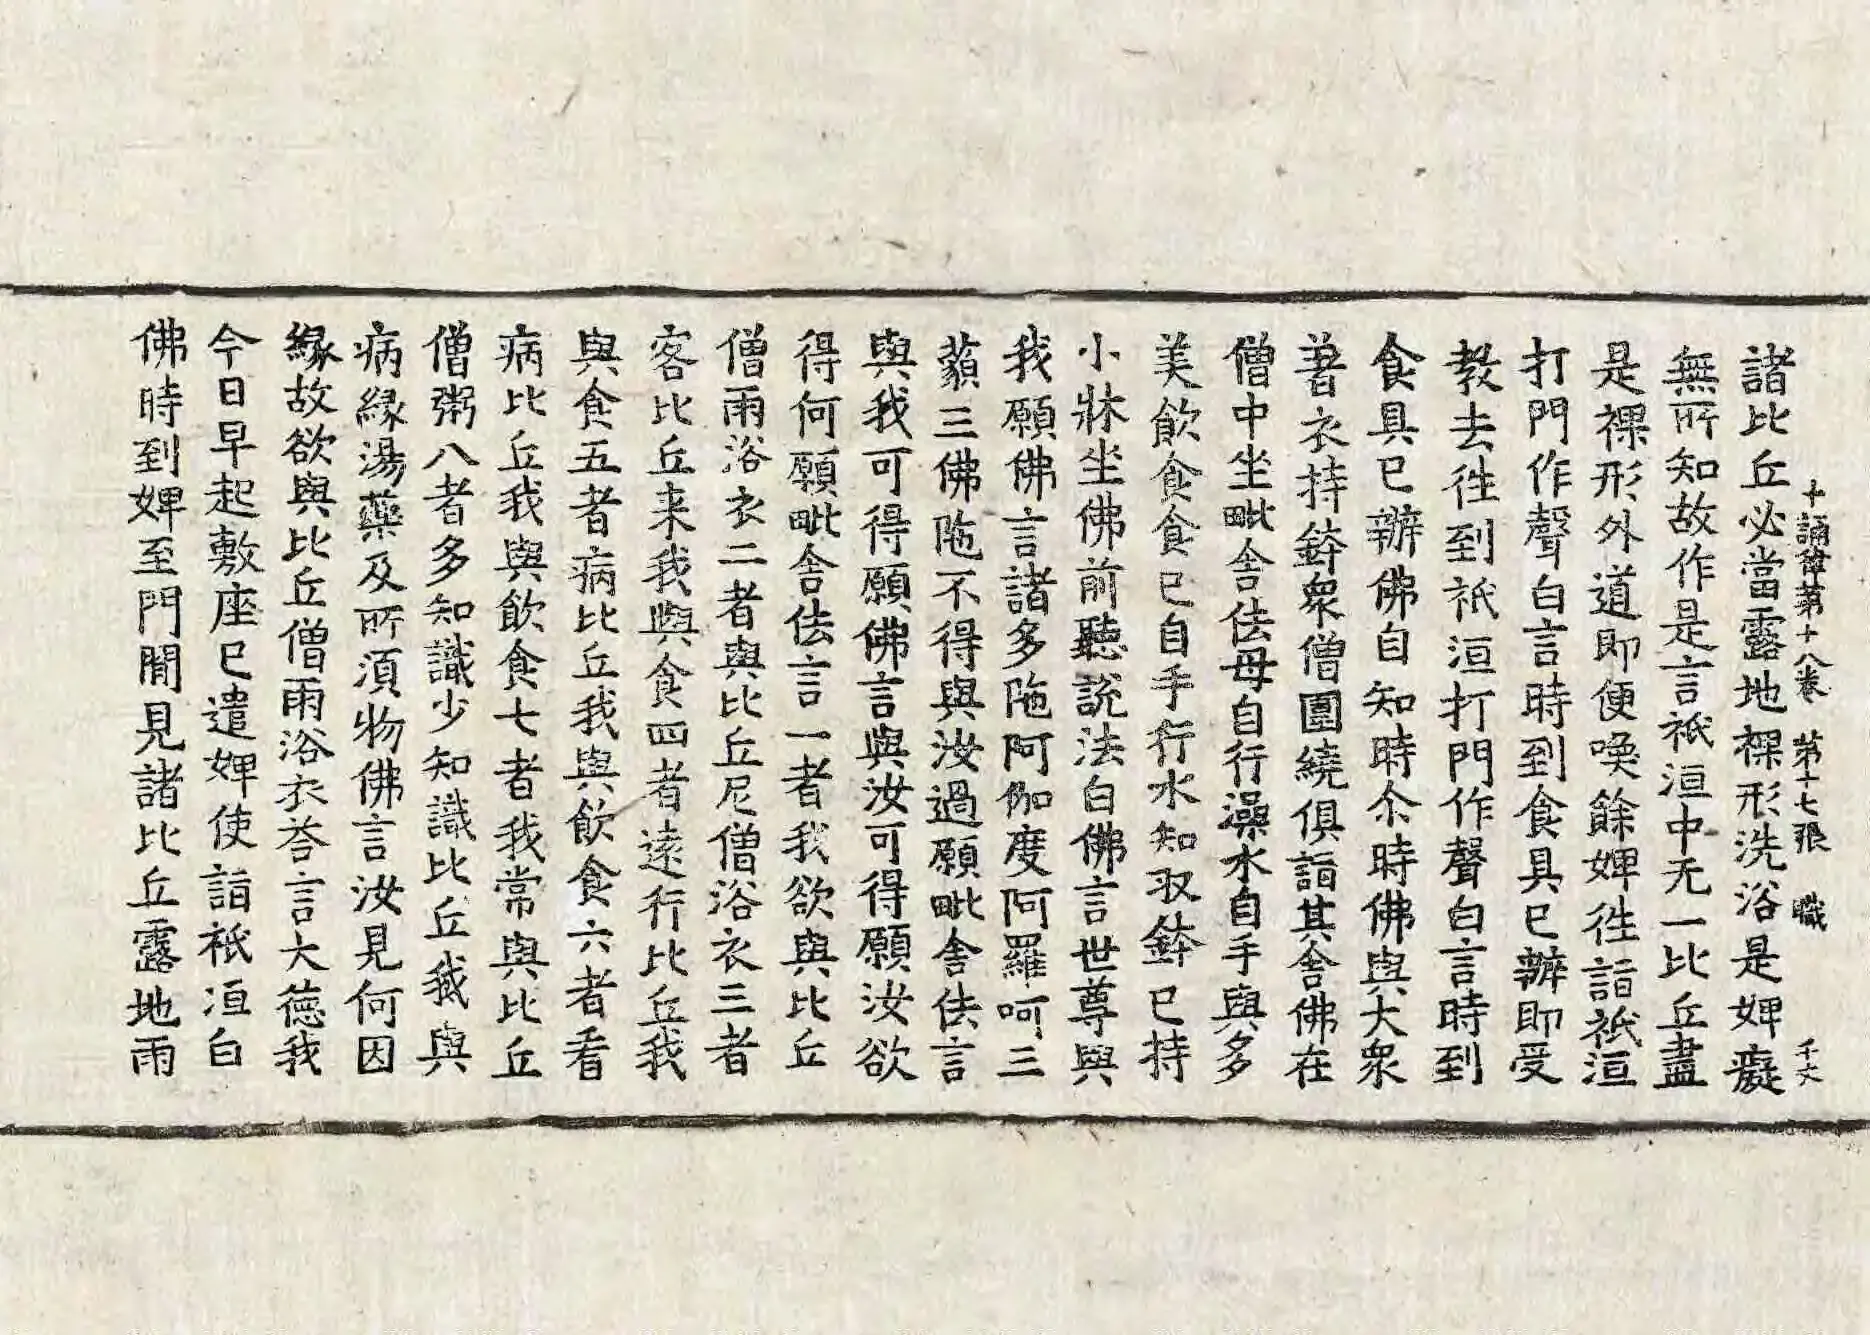 十誦律第十八卷 第十七張 職 千文
諸比丘必當露地裸形洗浴是婢癡
無所知故作是言祇洹中无一比丘盡
是裸形外道即便喚餘婢往詣祇洹
打門作聲白言時到食具已辦即受
教去往到祇洹打門作聲白言時到
食具已辦佛自知時尒時佛與大衆
著衣持鉢衆僧圍繞俱詣其舍佛在
僧中坐毗舍佉母自行澡水自手與多
美飲食食已自手行水知収鉢已持
小牀坐佛前聽說法白佛言世尊與
我願佛言諸多陁阿伽度阿羅呵三
藐三佛陁不得與汝過願毗舍佉言
與我可得願佛言與汝可得願汝欲
得何願毗舍佉言一者我欲與比丘
僧雨浴衣二者與比丘尼僧浴衣三者
客比丘来我與食四者遠行比丘我
與食五者病比丘我與飲食六者看
病比丘我與飲食七者我常與比丘
僧粥八者多知識少知識比丘我與
病緣湯藥及所湏物佛言汝見何因
緣故欲與比丘僧雨浴衣荅言大德我
今日早起敷座已遣婢使詣祇洹白
佛時到婢至門閒見諸比丘露地雨